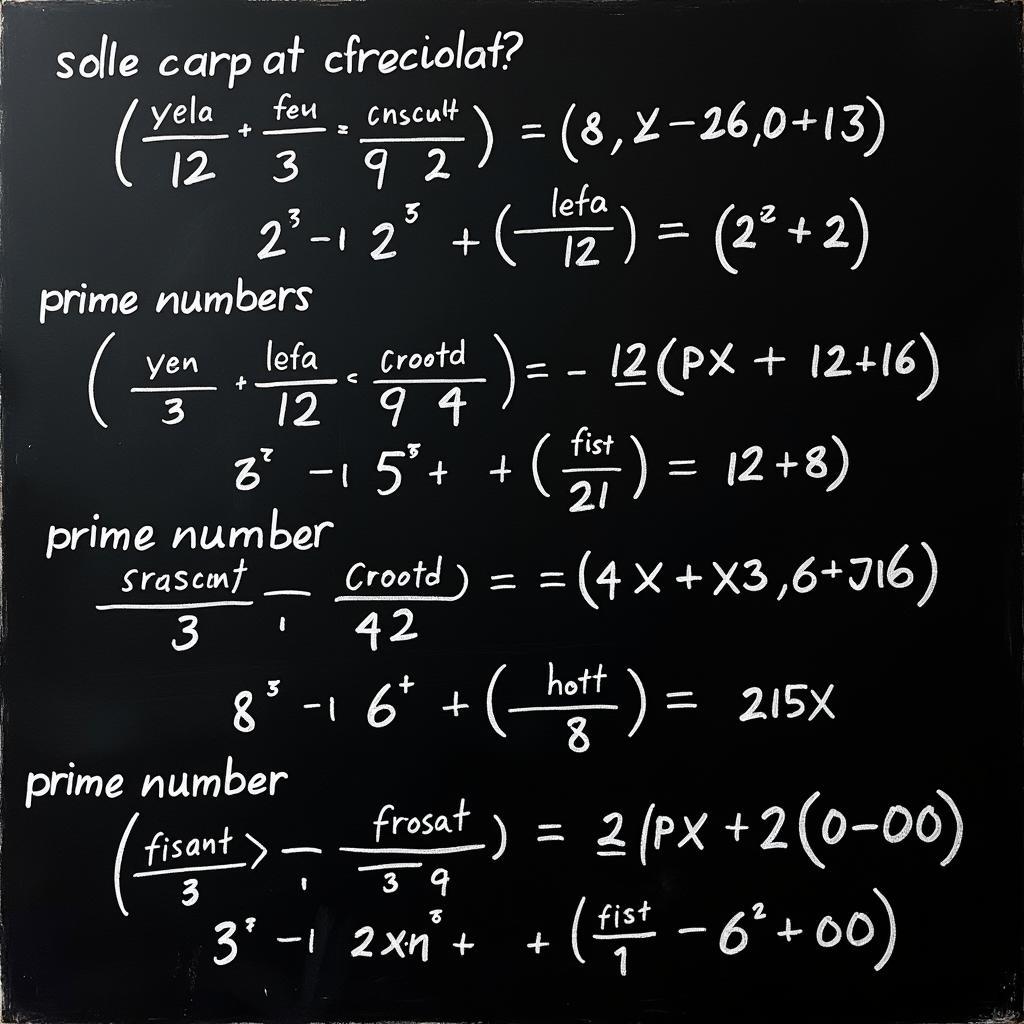 solle carp at cfreciolat?
(yela/12 + feu/3 = cnscult/9 2) = (8, y-26,0+13)
2³-1 2⁵ + (lefa/12) = (2²+2)
prime numbers
(yen/3 + lefa/12 < Crootd/9 4) = - 12(PX + 12+16)
3² -1 5⁵+ + (fist/21) = 12+8)
prime number
srascmt/3 - Crootd/42) = =(4 X + X3,6+J16)
8³ -1 6⁺ + (hott/8) = 215X
prime number
(fisant/3 > - frosat/3 9) = 2(PX +2(0-00)
3² -1 2x·n⁸ + + (fist/1 - 6²+00)